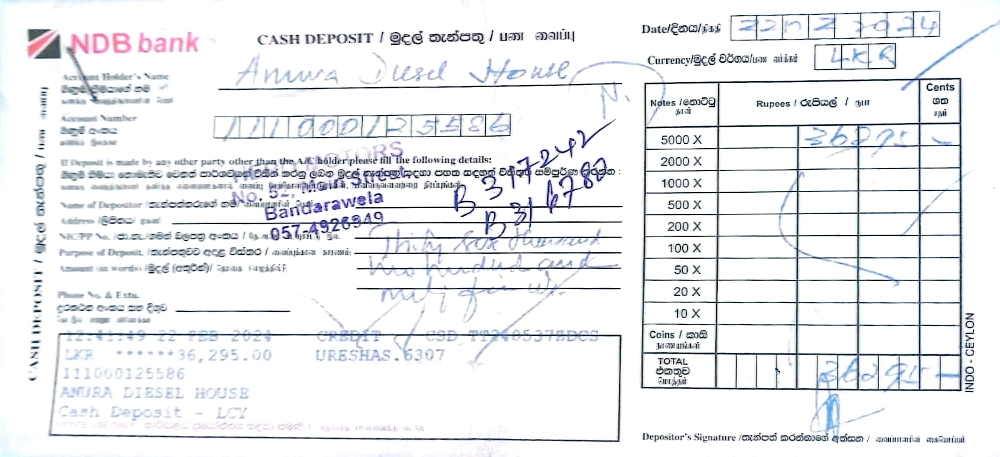 NDB bank
CASH DEPOSIT / මුදල් තැන්පතු / பண வைப்பு
Date/දිනය/திகதி 22 02 2024
Currency/මුදල් වර්ගය/பண வகை LKR
Account Holder's Name Anura Diesel House
ගිණුම් හිමියාගේ නම
Account Number
ගිණුම් අංකය 111000125586
N.
If Deposit is made by any other party other than the A/C holder please fill the following details:
MOTORS
No. 52, Main Street
Bandarawela
057-4926349
B 317242
B 316782
Name of Depositor / තැන්පත්කරුගේ නම
Address /ලිපිනය/
NIC/PP No.
Purpose of Deposit.
Amount (in words) /මුදල් (අකුරින්)/
Thirty Six Thousand
Two hundred and
Ninty five
Phone No. & Extn.
දුරකථන අංකය සහ දිගුව
12:41:49 22 FEB 2024 CREDIT CSD
LKR ******36,295.00 URESHAS.6307
111000125586
ANURA DIESEL HOUSE
Cash Deposit - LCY
Notes /නෝට්ටු Rupees / රුපියල් / ரூபா Cents ශත சதம்
5000 X 36295 -
2000 X
1000 X
500 X
200 X
100 X
50 X
20 X
10 X
Coins / කාසි
நாணயங்கள்
TOTAL
එකතුව
மொத்தம் 36295 -
Depositor's Signature /තැන්පත් කරන්නාගේ අත්සන /
CASH DEPOSIT / මුදල් තැන්පතු / பண வைப்பு
INDO - CEYLON